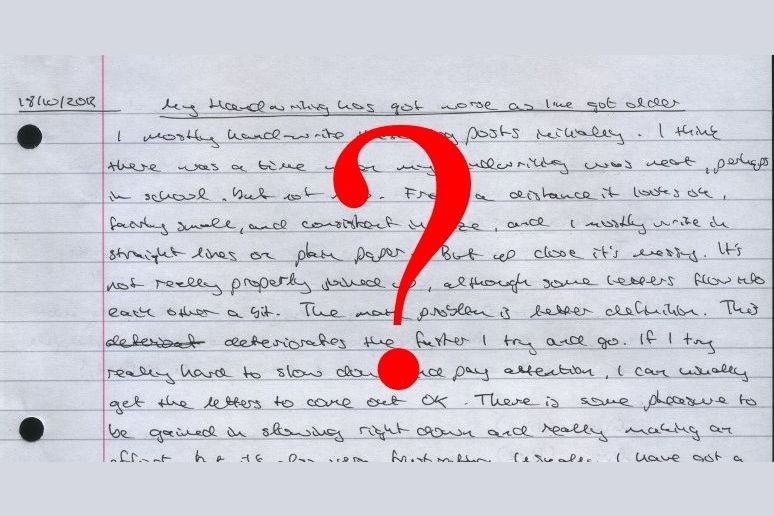 18/10/2013 My Handwriting has got worse as I've got older
I mostly hand-write posts initially. I think
there was a time my handwriting was neat, perhaps
in school. But not. From a distance it looks ok,
fairly small, and consistent in size, and I mostly write in
straight lines on plain paper. But up close it's messy. It's
not really properly joined up, although some letters flow into
each other a bit. The main problem is letter definition. This
deteriorates the faster I try and go. If I try
really hard to slow down and pay attention, I can usually
get the letters to come out OK. There is some pleasure to
be gained in slowing right down and really making an
effort, but it's also very frustrating. Usually I have got a
?